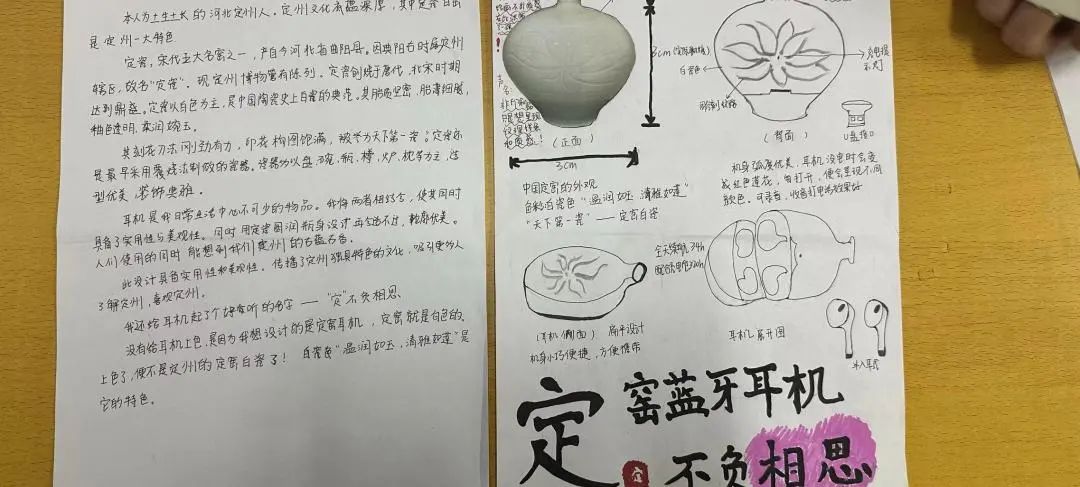 本人为土生土长的河北定州人。定州文化底蕴深厚，其中定瓷白瓷
是定州一大特色
定窑，宋代五大名窑之一，产自今河北省曲阳县。因曲阳古时属定州
辖区，故名“定瓷”。现定州博物馆有陈列。定窑创烧于唐代，北宋时期
达到鼎盛。定窑以白色为主，是中国陶瓷史上白瓷的典范。其胎质坚密，胎薄细腻，
釉色透明，柔润媲玉。
其刻花刀法刚劲有力，印花构图饱满，被誉为天下第一瓷。定瓷还
是最早采用覆烧法制做的瓷器。瓷器以盘、碗、瓶、樽、炉、枕等为主，造
型优美，装饰典雅。
耳机是我日常生活中必不可少的物品。我将两者相结合，使其同时
具备了实用性与美观性。同时用定窑圆润瓶身设计再合适不过，轮廓优美。
人们使用的同时能想到我们定州的古蕴古香。
此设计具备实用性和美观性。传播了定州独具特色的文化，吸引更多人
了解定州，喜欢定州。
我还给耳机起了个好听的名字——“定”不负相思、
没有给耳机上色，是因为我想设计的是定窑耳机，定窑就是白色的、
上色了，便不是定州的定窑白瓷了！白瓷色“温润如玉，清雅如莲”是
它的特色。
3cm
(正面)
3cm
白瓷色
充电提
示灯
U盘接口
(背面)
中国定窑的外观
色彩白瓷色“温润如玉，清雅如莲”
“天下第一瓷”——定窑白瓷
机身弧度优美，耳机没电时会变
成红色莲花，每打开，便会呈现不同
颜色。可录音，收音打电话效果好
24h
(耳机侧面) 扁平设计
机身小巧便捷，方便携带
耳机展开图
半入耳式
定
窑蓝牙耳机
定
不负相思